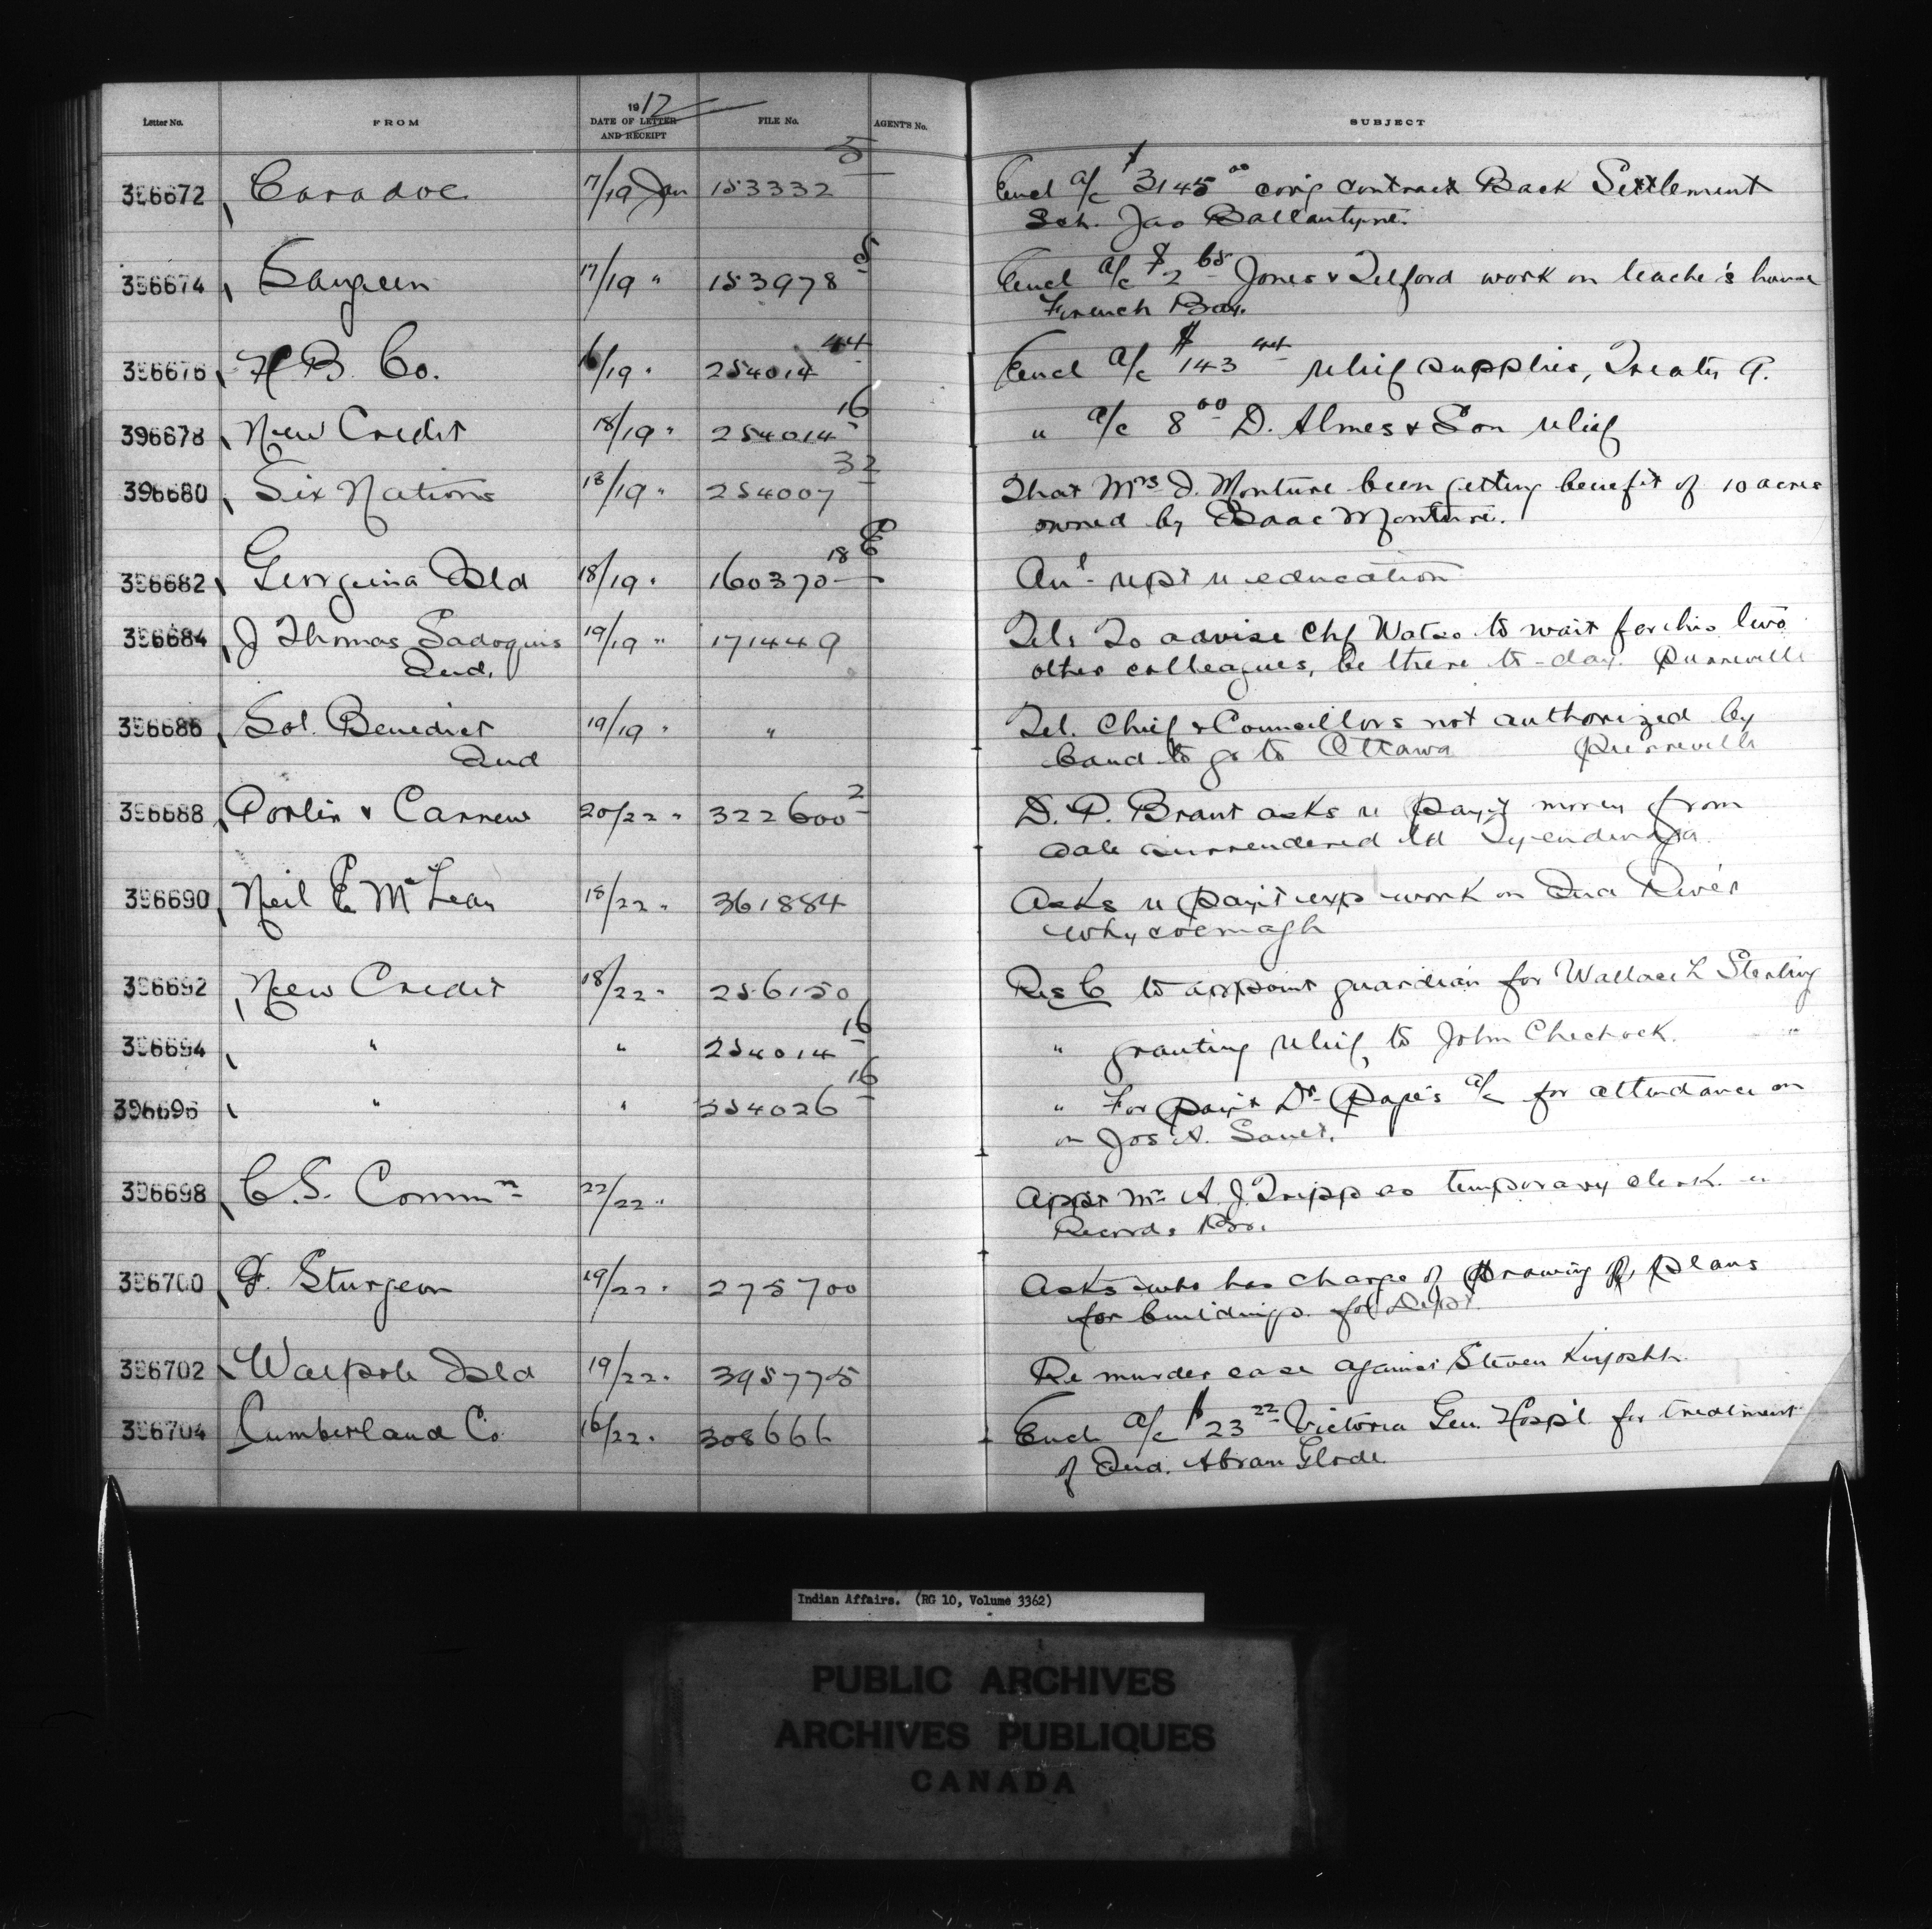 Letter No. FROM 1912 DATE OF LETTER AND RECEIPT FILE No. AGENT'S No. SUBJECT
396672 Caradoc 17/19 Jan 153332 5 Encl a/c $3145 00 comp contract Back Settlement
Sch. Jas Ballantyne.
396674 Saugeen 17/19 " 153978 5 Encl a/c $2 65 Jones & Telford work on teache's house
French Bay.
396676 H B. Co. 16/19 " 254014 44 Encl a/c $143 44 relief supplies, Treaty 9.
396678 New Credit 18/19 " 254014 16 " a/c 8 00 D. Almes & Son relief
396680 Six Nations 18/19 " 254007 32 That Mrs D. Monture been getting benefit of 10 acres
owned by Isaac Monture.
396682 Georgina Isld 18/19 " 160370 18 Anl rept re education
396684 J Thomas Sadoquis 19/19 " 171449 Tel. To advise Chf Watso to wait for his two
Ind. other colleagues, be there to-day. Pierreville
396686 Sol. Benedict 19/19 " " Tel. Chief & Councillors not authorized by
Ind band to go to Ottawa Pierreville
396688 Porlin & Carnew 20/22 " 322600 2 D. P. Brant asks re pay't money from
sale surrendered ld Tyendinaga.
396690 Neil E McLean 18/22 " 361884 Asks re pay't exp work on Ind River
Whycocmagh
396692 New Credit 18/22 " 256150 Res C to appoint guardian for Wallace L Sterling
396694 " " 254014 16 " granting relief to John Chechock. "
396696 " " 254026 16 " For pay't Dr Pape's a/c for attendance on
on Jos A. Sault.
396698 C.S. Commn 22/22 " Appt Mr A. J. Tripp as temporary clerk. "
Records Br.
396700 F. Sturgeon 19/22 " 275700 Asks who has charge of drawing plans
for buildings for Dept.
396702 Walpole Isld 19/22 " 395775 Re murder case against Steven Kiyoshk
396704 Cumberland Co 16/22 " 308666 Encl a/c $23 22 Victoria Gen. Hosp'l for treatment
of Ind. Abram Glode.
Indian Affairs. (RG 10, Volume 3362)
PUBLIC ARCHIVES
ARCHIVES PUBLIQUES
CANADA